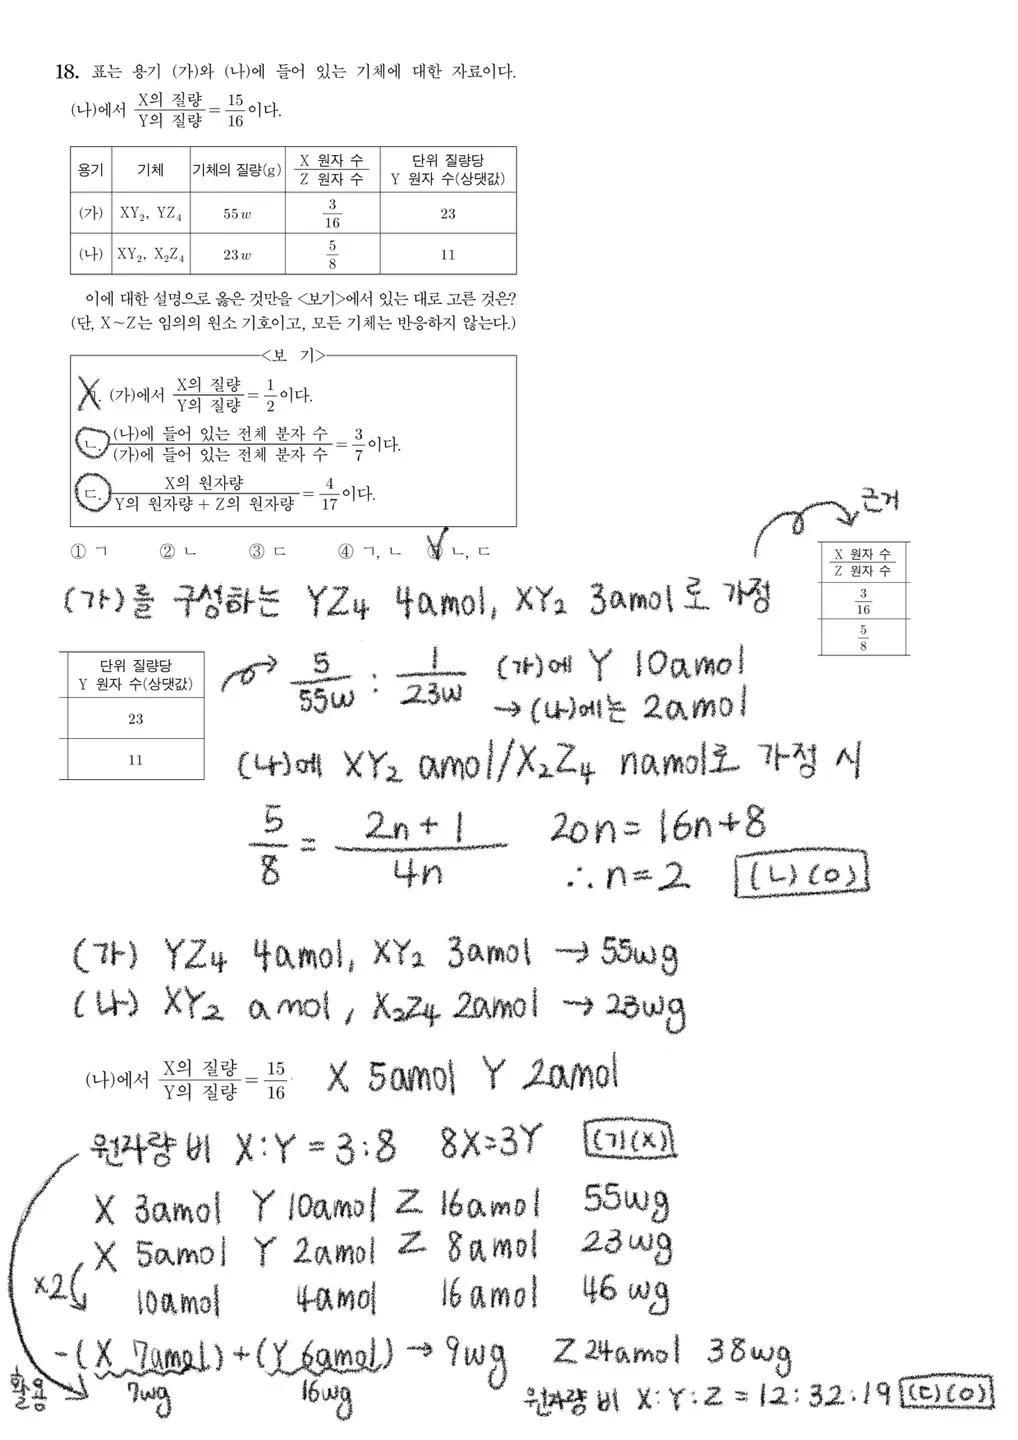 18. 표는 용기 (가)와 (나)에 들어 있는 기체에 대한 자료이다.
(나)에서 X의 질량/Y의 질량 = 15/16이다.
용기 기체 기체의 질량(g) X 원자 수/Z 원자 수 단위 질량당 Y 원자 수(상댓값)
(가) XY₂, YZ₄ 55w 3/16 23
(나) XY₂, X₂Z₄ 23w 5/8 11
이에 대한 설명으로 옳은 것만을 <보기>에서 있는 대로 고른 것은?
(단, X~Z는 임의의 원소 기호이고, 모든 기체는 반응하지 않는다.)
<보 기>
ㄱ. (가)에서 X의 질량/Y의 질량 = 1/2이다.
ㄴ. (나)에 들어 있는 전체 분자 수/(가)에 들어 있는 전체 분자 수 = 3/7이다.
ㄷ. X의 원자량/Y의 원자량 + Z의 원자량 = 4/17이다.
① ㄱ ② ㄴ ③ ㄷ ④ ㄱ, ㄴ ⑤ ㄴ, ㄷ
근거
X 원자 수/Z 원자 수
3/16
5/8
(가)를 구성하는 YZ₄ 4amol, XY₂ 3amol로 가정
단위 질량당
Y 원자 수(상댓값)
23
11
5/55w : 1/23w (가)에 Y 10amol
→ (나)에는 2amol
(나)에 XY₂ amol/X₂Z₄ namol로 가정 시
5/8 = 2n+1/4n 20n=16n+8
∴n=2 (ㄴ)(O)
(가) YZ₄ 4amol, XY₂ 3amol → 55wg
(나) XY₂ amol, X₂Z₄ 2amol → 23wg
(나)에서 X의 질량/Y의 질량 = 15/16 X 5amol Y 2amol
원자량 비 X:Y=3:8 8X=3Y (ㄱ)(X)
X 3amol Y 10amol Z 16amol 55wg
X 5amol Y 2amol Z 8amol 23wg
×2 10amol 4amol 16amol 46wg
-(X 7amol)+(Y 6amol) → 9wg Z 24amol 38wg
활용 7wg 16wg
원자량 비 X:Y:Z=12:32:19 (ㄷ)(O)